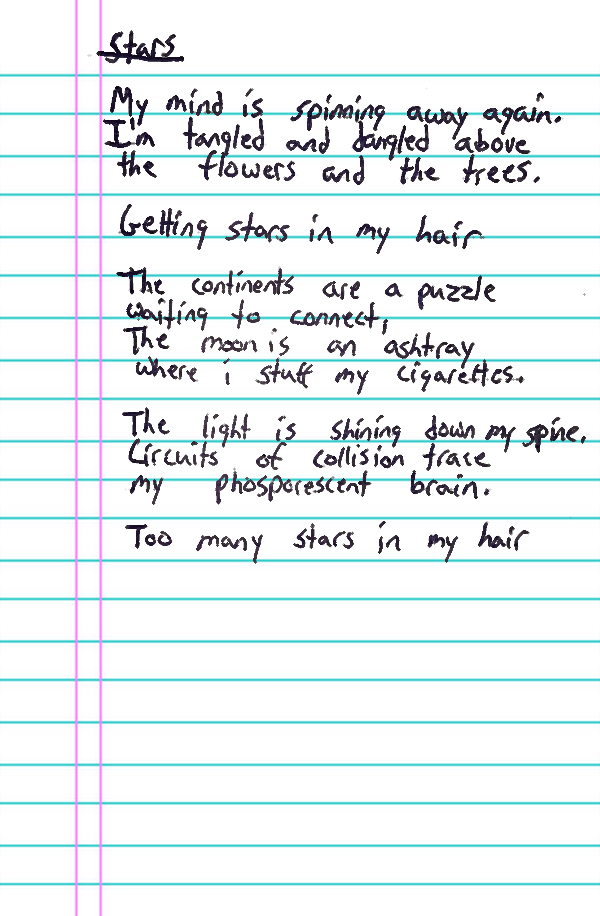 Stars
My mind is spinning away again.
I'm tangled and dangled above
the flowers and the trees.
Getting stars in my hair
The continents are a puzzle
waiting to connect,
The moon is an ashtray
where i stuff my cigarettes.
The light is shining down my spine.
Circuits of collision trace
my phosporescent brain.
Too many stars in my hair